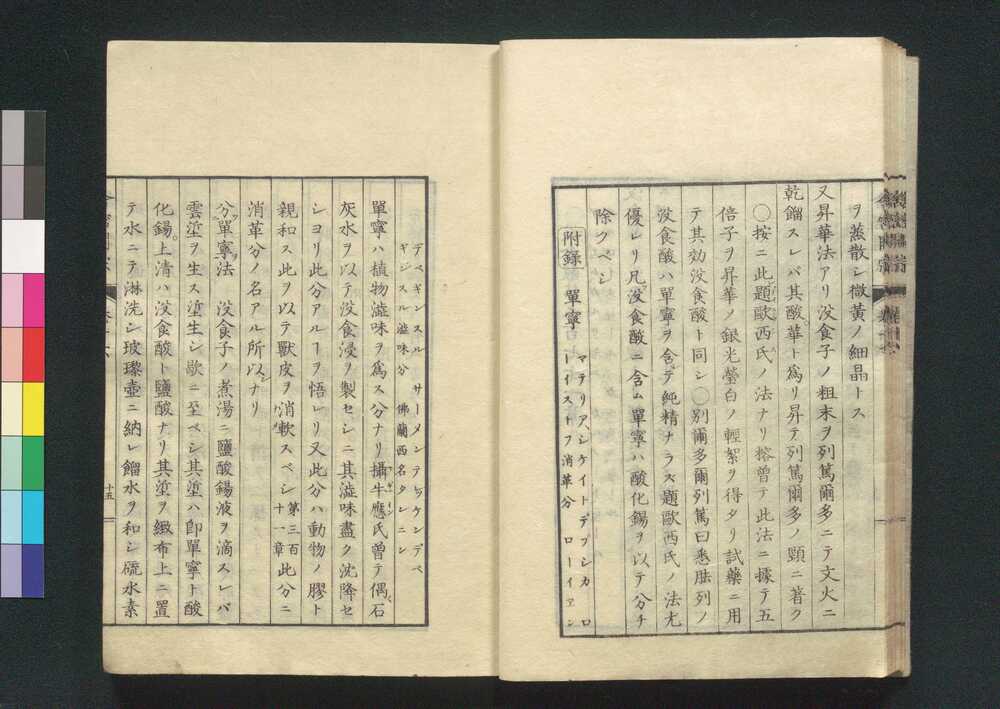 ヲ蒸散シ微黄ノ細晶トス
又昇華法アリ没食子ノ粗末ヲ列篤爾多ニテ文火ニ
乾餾スレバ其酸華ト為リ昇テ列篤爾多ノ頸ニ著ク
〇按ニ此題歐西氏ノ法ナリ榕曾テ此法ニ據テ五
倍子ヲ昇華ノ銀光瑩白ノ輕絮ヲ得タリ試藥ニ用
テ其効没食酸ト同シ〇別爾多爾列篤曰悉肱列ノ
没食酸ハ單寧ヲ含テ純精ナラズ題歐西氏ノ法尤
優レリ凡没食酸ニ含ム單寧ハ酸化錫ヲ以テ分チ
除クベシ
附録 單寧 マテリア、シケイトデプシカ ロ
ーイストフ消革分 ローイエン
デベギンスル サーメンテレッケンデベ
ギジスル澁味分 佛蘭西名タンニン
單寧ハ植物澁味ヲ爲ス分ナリ攝牛應氏曽テ偶石
灰水ヲ以テ没食浸ヲ製セシニ其澁味盡ク沈降セ
シヨリ此分アルヿヲ悟レリ又此分ハ動物ノ膠ト
親和ス此ヲ以テ獸皮ヲ消軟スベシ 第三百十一章 此分ニ
消革分ノ名アル所以ナリ
分單寧法 没食子ノ煮湯ニ鹽酸錫液ヲ滴スレバ
雲埿ヲ生ス埿生シ歇ニ至ベシ其埿ハ卽單寧ト酸
化錫。上清ハ没食酸ト鹽酸ナリ其埿ヲ緻布上ニ置
テ水ニテ淋洗シ玻瓈壺ニ納レ餾水ヲ和シ硫水素
十五